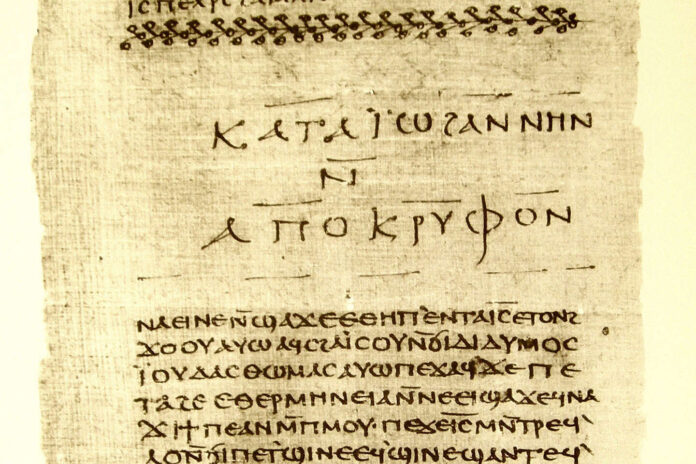 ⲓ̅ⲥ̅ ⲡⲉⲭⲣ̅ⲥ̅ ϩⲁⲙⲏⲛ
ⲕⲁⲧⲁ ⲓ̈ⲱϩⲁⲛⲛⲏⲛ
ⲛ̄
ⲁⲡⲟⲕⲣⲩⲫⲟⲛ
ⲛⲁⲉⲓ ⲛⲉ ⲛ̄ϣⲁϫⲉ ⲉⲑⲏⲡ ⲉⲛⲧⲁⲓ̅ⲥ̅ ⲉⲧⲟⲛϩ
ϫⲟⲟⲩ ⲁⲩⲱ ⲁϥⲥϩⲁⲓ̈ⲥⲟⲩ ⲛ̄ϭⲓ ⲇⲓⲇⲩⲙⲟⲥ
ⲓ̈ⲟⲩⲇⲁⲥ ⲑⲱⲙⲁⲥ ⲁⲩⲱ ⲡⲉϫⲁϥ ϫⲉ ⲡⲉ
ⲧⲁϩⲉ ⲉⲑⲉⲣⲙⲏⲛⲉⲓⲁ ⲛ̄ⲛⲉⲉⲓϣⲁϫⲉ ϥⲛⲁ
ϫⲓ ϯⲡⲉ ⲁⲛ ⲙ̄ⲡⲙⲟⲩ· ⲡⲉϫⲉ ⲓ̅ⲥ̅ ⲙⲛ̄ⲧⲣⲉϥ
ⲗⲟ ⲛ̄ϭⲓ ⲡⲉⲧϣⲓⲛⲉ ⲉϥϣⲓⲛⲉ ϣⲁⲛⲧⲉϥ